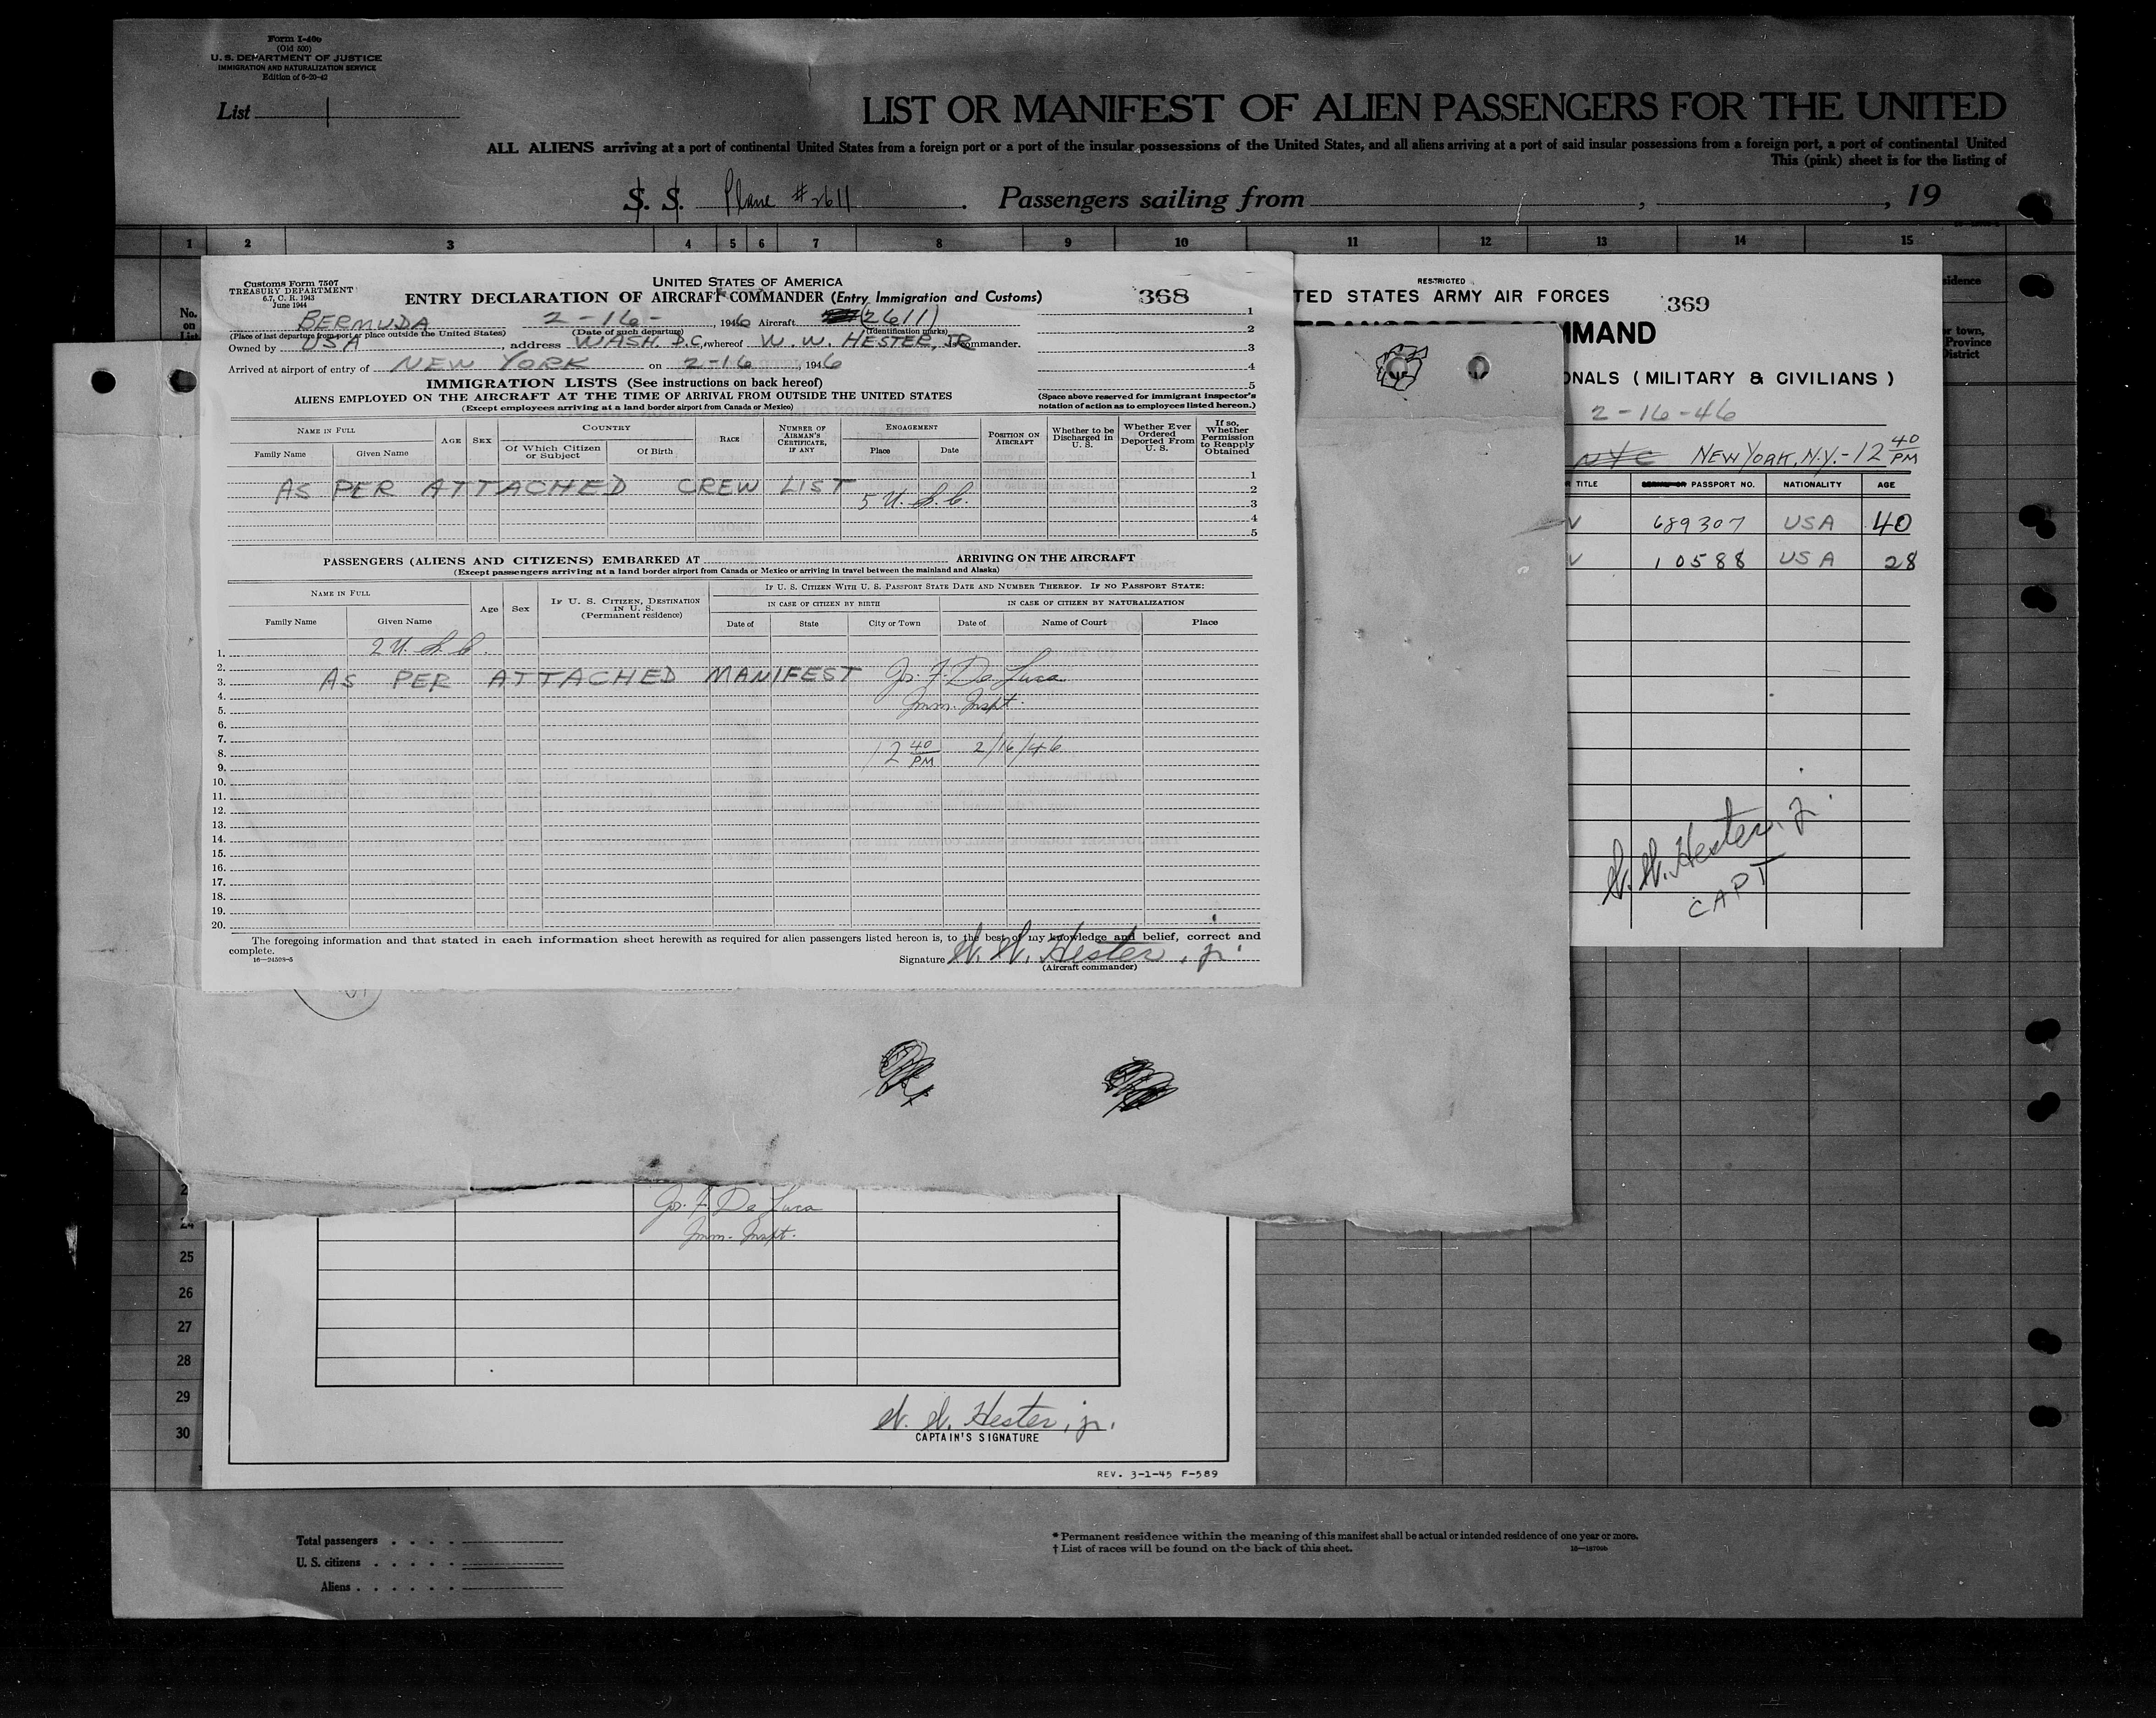 Form I-400
(Old 500)
U. S. DEPARTMENT OF JUSTICE
IMMIGRATION AND NATURALIZATION SERVICE
Edition of 6-20-42
List 1
LIST OR MANIFEST OF ALIEN PASSENGERS FOR THE UNITED
ALL ALIENS arriving at a port of continental United States from a foreign port or a port of the insular possessions of the United States, and all aliens arriving at a port of said insular possessions from a foreign port, a port of continental United
This (pink) sheet is for the listing of
S. S. Plane #2611. Passengers sailing from , , 19
1 2 3 4 5 6 7 8 9 10 11 12 13 14 15
No.
on
List
Customs Form 7507
TREASURY DEPARTMENT
6.7, C. R. 1943
June 1944
UNITED STATES OF AMERICA
ENTRY DECLARATION OF AIRCRAFT COMMANDER (Entry, Immigration and Customs)
368
BERMUDA 2-16-, 1946 Aircraft (2611)
(Place of last departure from port or place outside the United States) (Date of such departure) (Identification marks)
Owned by USA, address WASH. D.C., whereof W. W. HESTER, JR commander.
Arrived at airport of entry of NEW YORK on 2-16, 1946
1
2
3
4
5
(Space above reserved for immigrant inspector's
notation of action as to employees listed hereon.)
IMMIGRATION LISTS (See instructions on back hereof)
ALIENS EMPLOYED ON THE AIRCRAFT AT THE TIME OF ARRIVAL FROM OUTSIDE THE UNITED STATES
(Except employees arriving at a land border airport from Canada or Mexico)
NAME IN FULL
Family Name Given Name
AGE SEX
COUNTRY
Of Which Citizen or Subject Of Birth
RACE
NUMBER OF AIRMAN'S CERTIFICATE, IF ANY
ENGAGEMENT
Place Date
POSITION ON AIRCRAFT
Whether to be Discharged in U. S.
Whether Ever Ordered Deported From U. S.
If so, Whether Permission to Reapply Obtained
AS PER ATTACHED CREW LIST
5 U.S.C.
1
2
3
4
5
PASSENGERS (ALIENS AND CITIZENS) EMBARKED AT ARRIVING ON THE AIRCRAFT
(Except passengers arriving at a land border airport from Canada or Mexico or arriving in travel between the mainland and Alaska)
NAME IN FULL
Family Name Given Name
Age Sex
IF U. S. CITIZEN, DESTINATION IN U. S.
(Permanent residence)
IF U. S. CITIZEN WITH U. S. PASSPORT STATE DATE AND NUMBER THEREOF. IF NO PASSPORT STATE:
IN CASE OF CITIZEN BY BIRTH IN CASE OF CITIZEN BY NATURALIZATION
Date of State City or Town Date of Name of Court Place
1. 2 U.S.C.
2.
3. AS PER ATTACHED MANIFEST Jos. F. De Luca
4. Imm. Inspt.
5.
6.
7.
8. 12 40 PM 2/16/46
9.
10.
11.
12.
13.
14.
15.
16.
17.
18.
19.
20.
The foregoing information and that stated in each information sheet herewith as required for alien passengers listed hereon is, to the best of my knowledge and belief, correct and
complete.
16—24598-5
Signature W. W. Hester, jr.
(Aircraft commander)
RESTRICTED
TED STATES ARMY AIR FORCES
369
MMAND
ONALS (MILITARY & CIVILIANS)
2-16-46
NYC NEW YORK, N.Y.-12 40 PM
R TITLE PASSPORT NO. NATIONALITY AGE
V 689307 USA 40
V 10588 USA 28
W. W. Hester, jr.
CAPT
sidence
or town,
Province
District
25
26
27
28
29
30
Jos. F. De Luca
Imm. Inspt.
W. W. Hester, jr.
CAPTAIN'S SIGNATURE
REV. 3-1-45 F-589
Total passengers
U. S. citizens
Aliens
* Permanent residence within the meaning of this manifest shall be actual or intended residence of one year or more.
† List of races will be found on the back of this sheet.